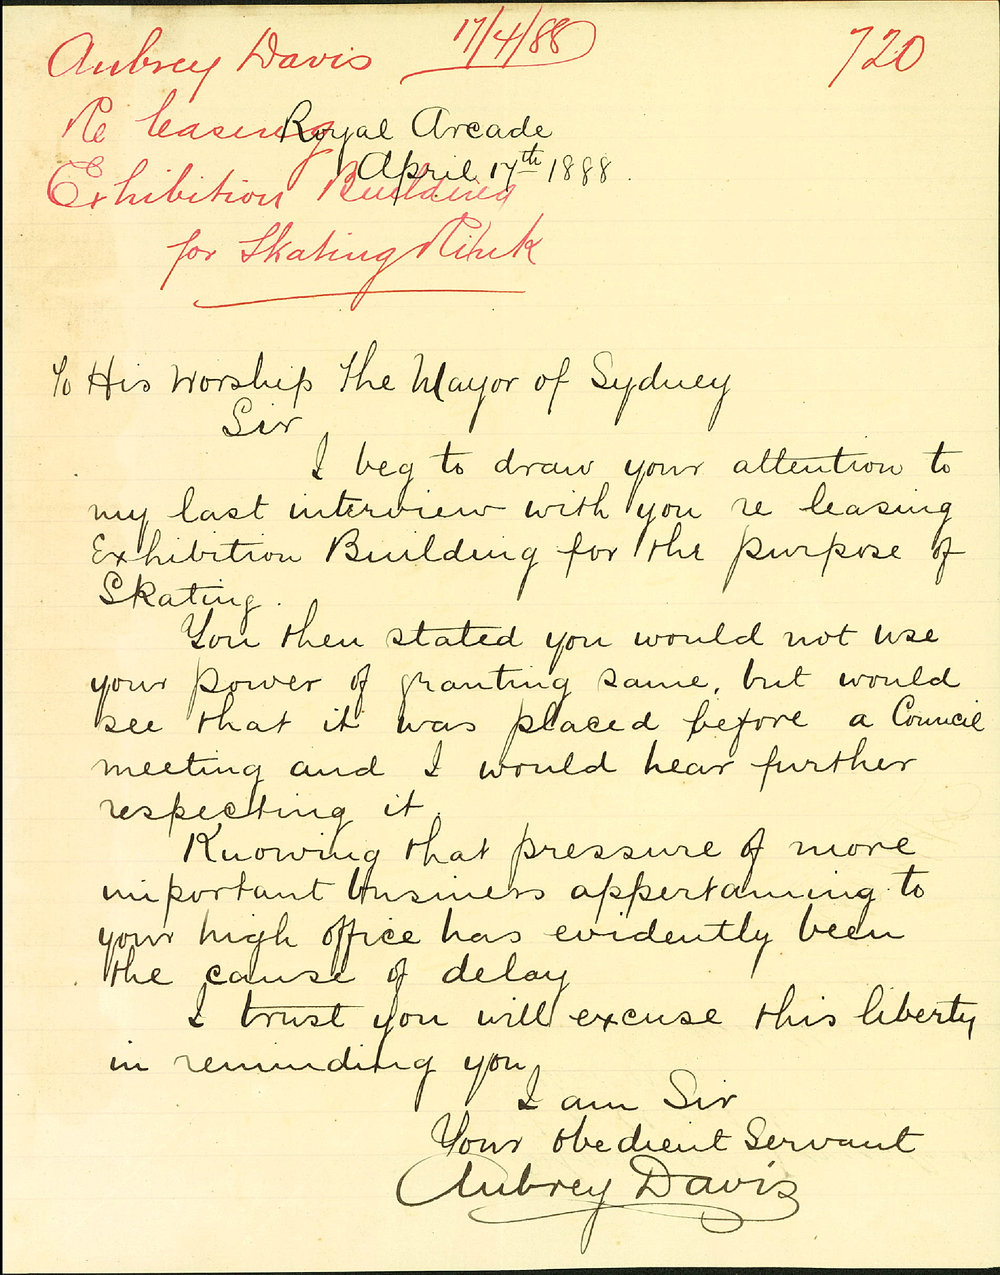 Aubrey Davis 17/4/88 720
Re leasing
Exhibition Building
for Skating Rink
Royal Arcade
April 17th 1888.
To His Worship The Mayor of Sydney
Sir
I beg to draw your attention to
my last interview with you re leasing
Exhibition Building for the purpose of
Skating.
You then stated you would not use
your power of granting same, but would
see that it was placed before a Council
meeting and I would hear further
respecting it.
Knowing that pressure of more
important business appertaining to
your high office has evidently been
the cause of delay
I trust you will excuse this liberty
in reminding you,
I am Sir
Your obedient Servant
Aubrey Davis